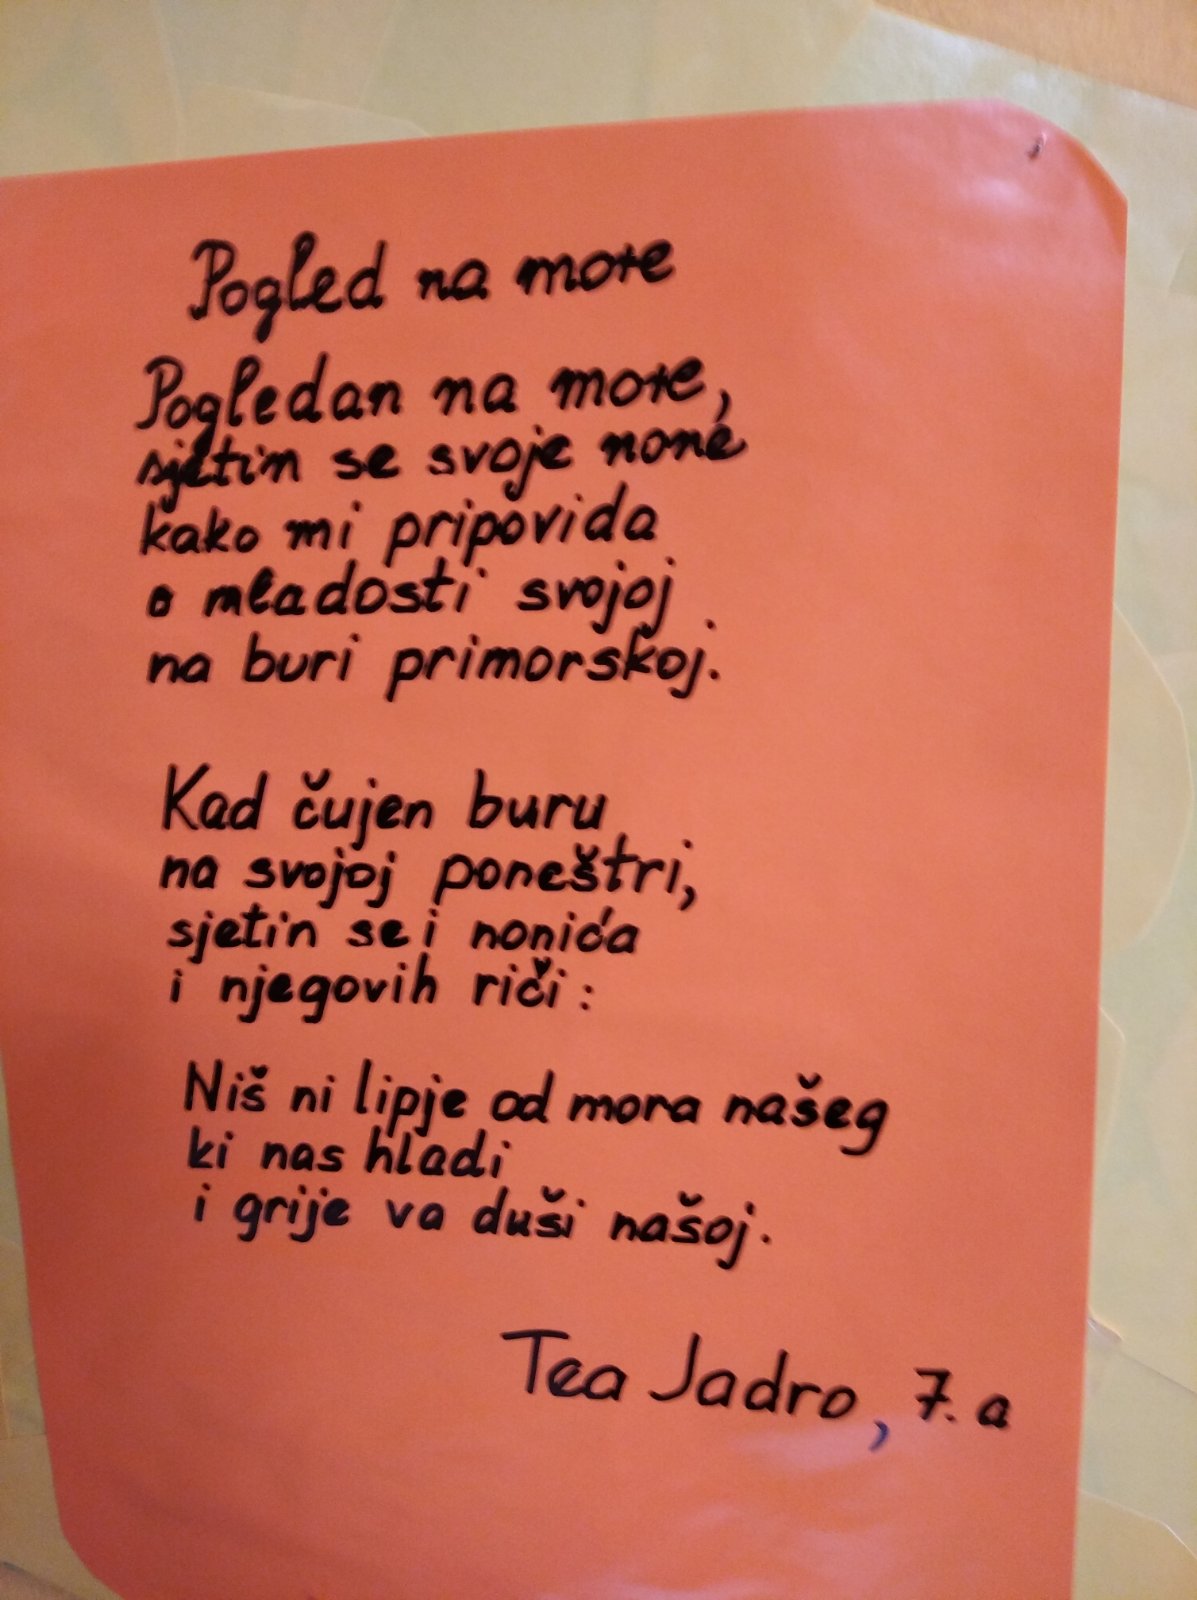 Pogled na more
Pogledan na more,
sjetin se svoje none
kako mi pripovida
o mladosti svojoj
na buri primorskoj.
Kad čujen buru
na svojoj poneštri,
sjetin se i nonića
i njegovih riči:
Niš ni lipje od mora našeg
ki nas hladi
i grije va duši našoj.
Tea Jadro, 7. a